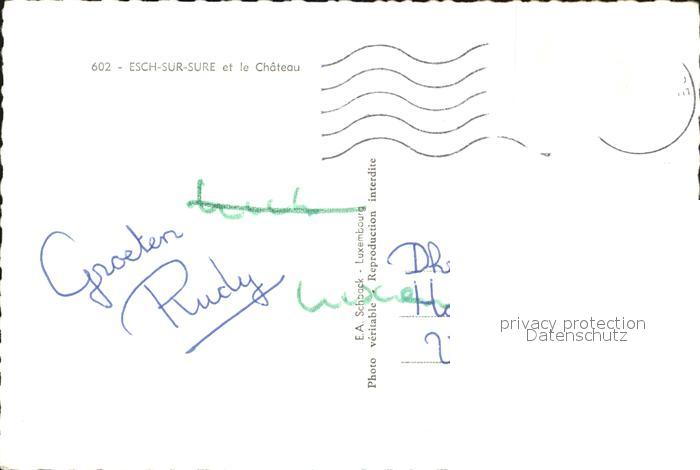 602 - ESCH-SUR-SURE et le Château
Groeten
Rudy
E.A. Schback - Luxembourg
Photo véritable - Reproduction interdite
privacy protection
Datenschutz